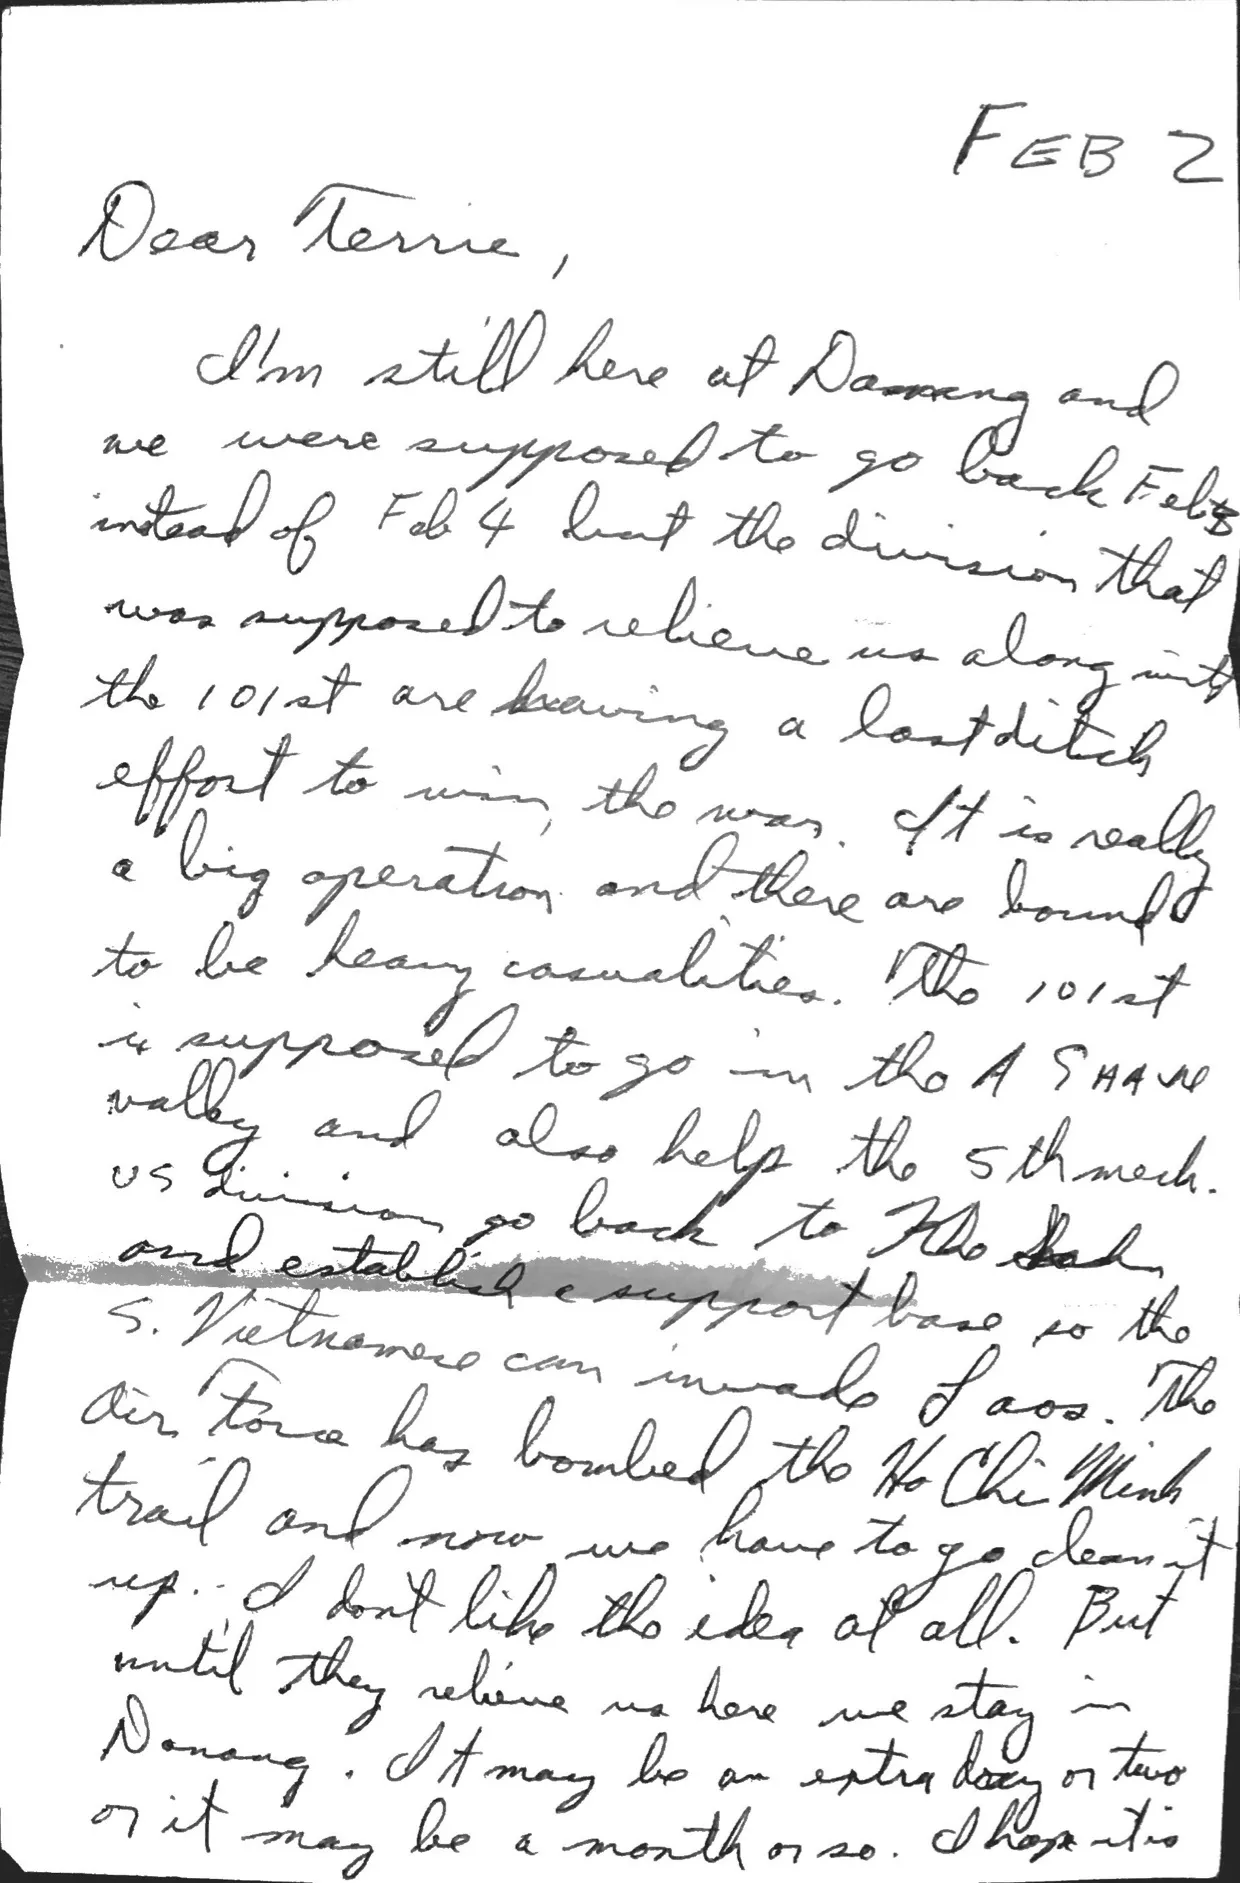 FEB 2
Dear Terrie,
I'm still here at Danang and
we were supposed to go back Feb 3
instead of Feb 4 but the division that
was supposed to relieve us along with
the 101st are having a last ditch
effort to win the war. It is really
a big operation and there are bound
to be heavy casualities. The 101st
is supposed to go in the A SHAUE
valley and also help the 5th mech.
US division go back to Khe Sahn
and establish a support base so the
S. Vietnamese can invade Laos. The
Air Force has bombed the Ho Chi Minh
trail and now we have to go clean it
up. I don't like the idea at all. But
until they relieve us here we stay in
Danang. It may be an extra day or two
or it may be a month or so. I hope it is